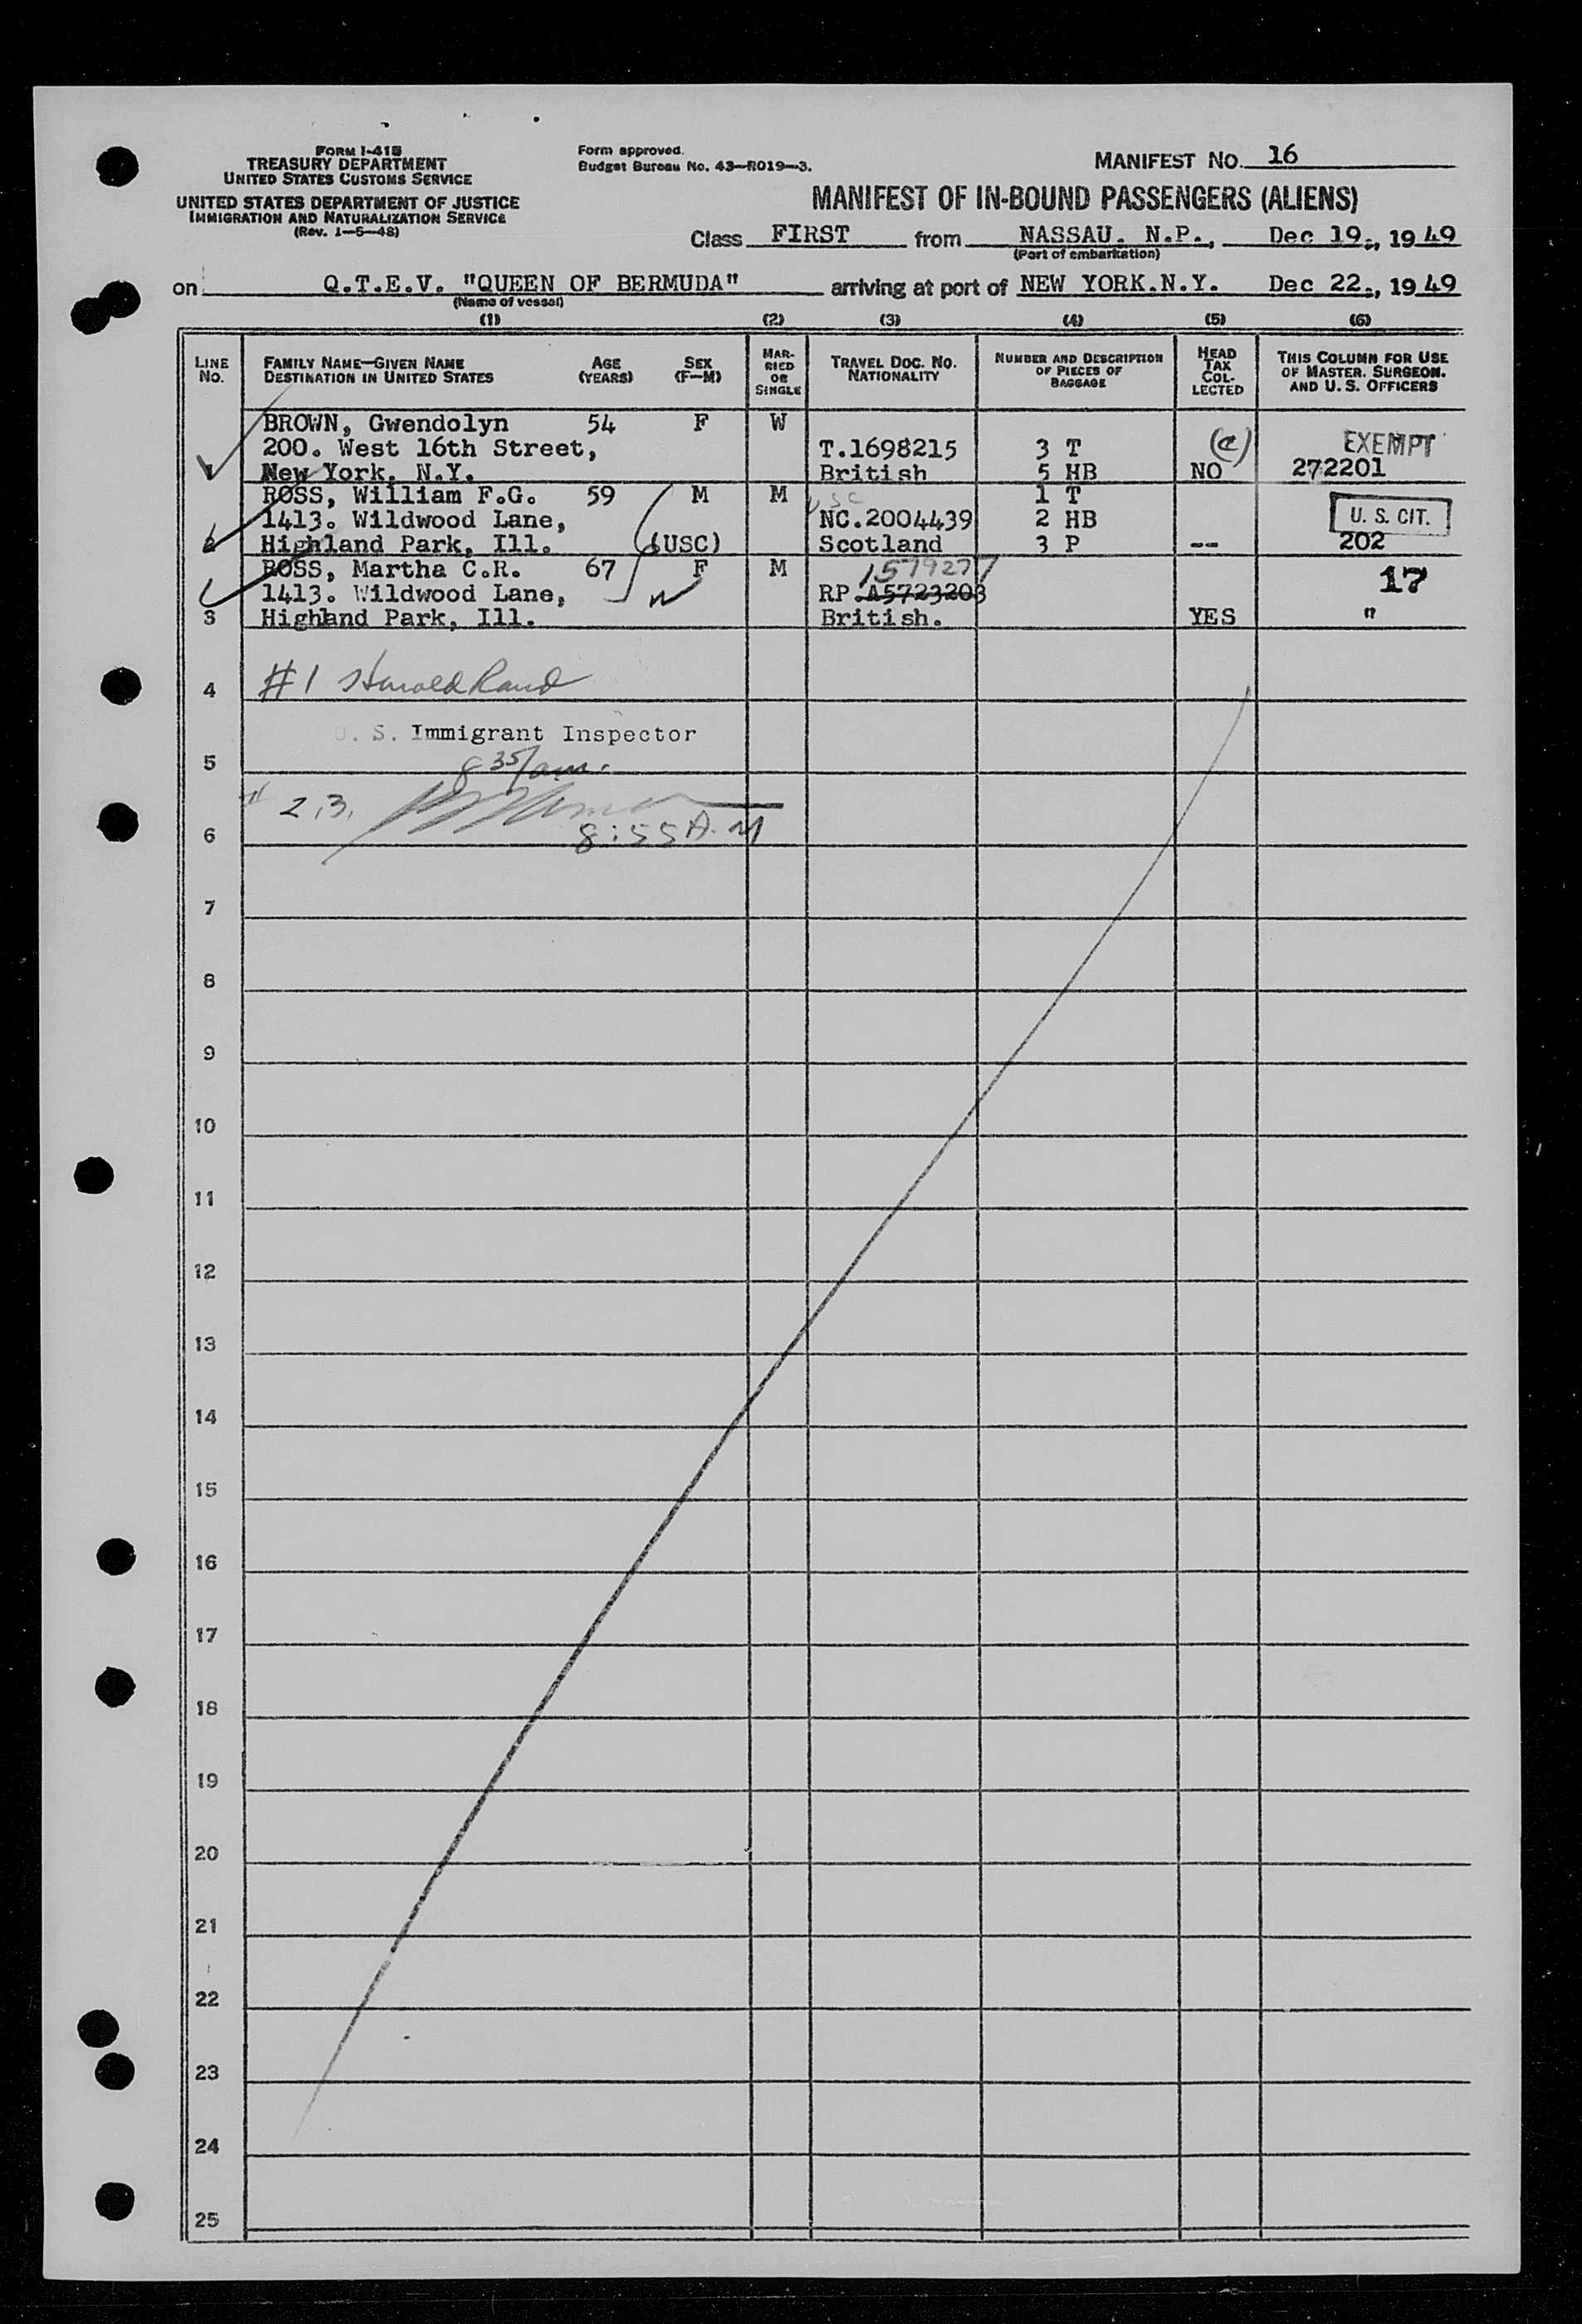 FORM I-415
TREASURY DEPARTMENT
UNITED STATES CUSTOMS SERVICE
UNITED STATES DEPARTMENT OF JUSTICE
IMMIGRATION AND NATURALIZATION SERVICE
(Rev. 1-5-48)
Form approved.
Budget Bureau No. 43-R019-3.
MANIFEST NO. 16
MANIFEST OF IN-BOUND PASSENGERS (ALIENS)
Class FIRST from NASSAU. N.P., Dec 19., 1949
(Port of embarkation)
on Q.T.E.V. "QUEEN OF BERMUDA" arriving at port of NEW YORK.N.Y. Dec 22., 1949
(Name of vessel)
(1) (2) (3) (4) (5) (6)
LINE NO.
FAMILY NAME—GIVEN NAME
DESTINATION IN UNITED STATES
AGE (YEARS)
SEX (F—M)
MARRIED OR SINGLE
TRAVEL DOC. NO.
NATIONALITY
NUMBER AND DESCRIPTION OF PIECES OF BAGGAGE
HEAD TAX COLLECTED
THIS COLUMN FOR USE OF MASTER. SURGEON. AND U. S. OFFICERS
BROWN, Gwendolyn 54 F W
200. West 16th Street, T.1698215 3 T (a) EXEMPT
1 New York, N.Y. British 5 HB NO 272201
ROSS, William F.G. 59 M M USC 1 T
1413. Wildwood Lane, NC.2004439 2 HB U. S. CIT.
2 Highland Park, Ill. (USC) Scotland 3 P -- 202
ROSS, Martha C.R. 67 F M 1579277 17
1413. Wildwood Lane, RP.A5723203
3 Highland Park, Ill. British. YES "
4 #1 Harold Rand
U. S. Immigrant Inspector
5 8 35/am.
2,3.
6 8:55 A.M
7
8
9
10
11
12
13
14
15
16
17
18
19
20
21
22
23
24
25